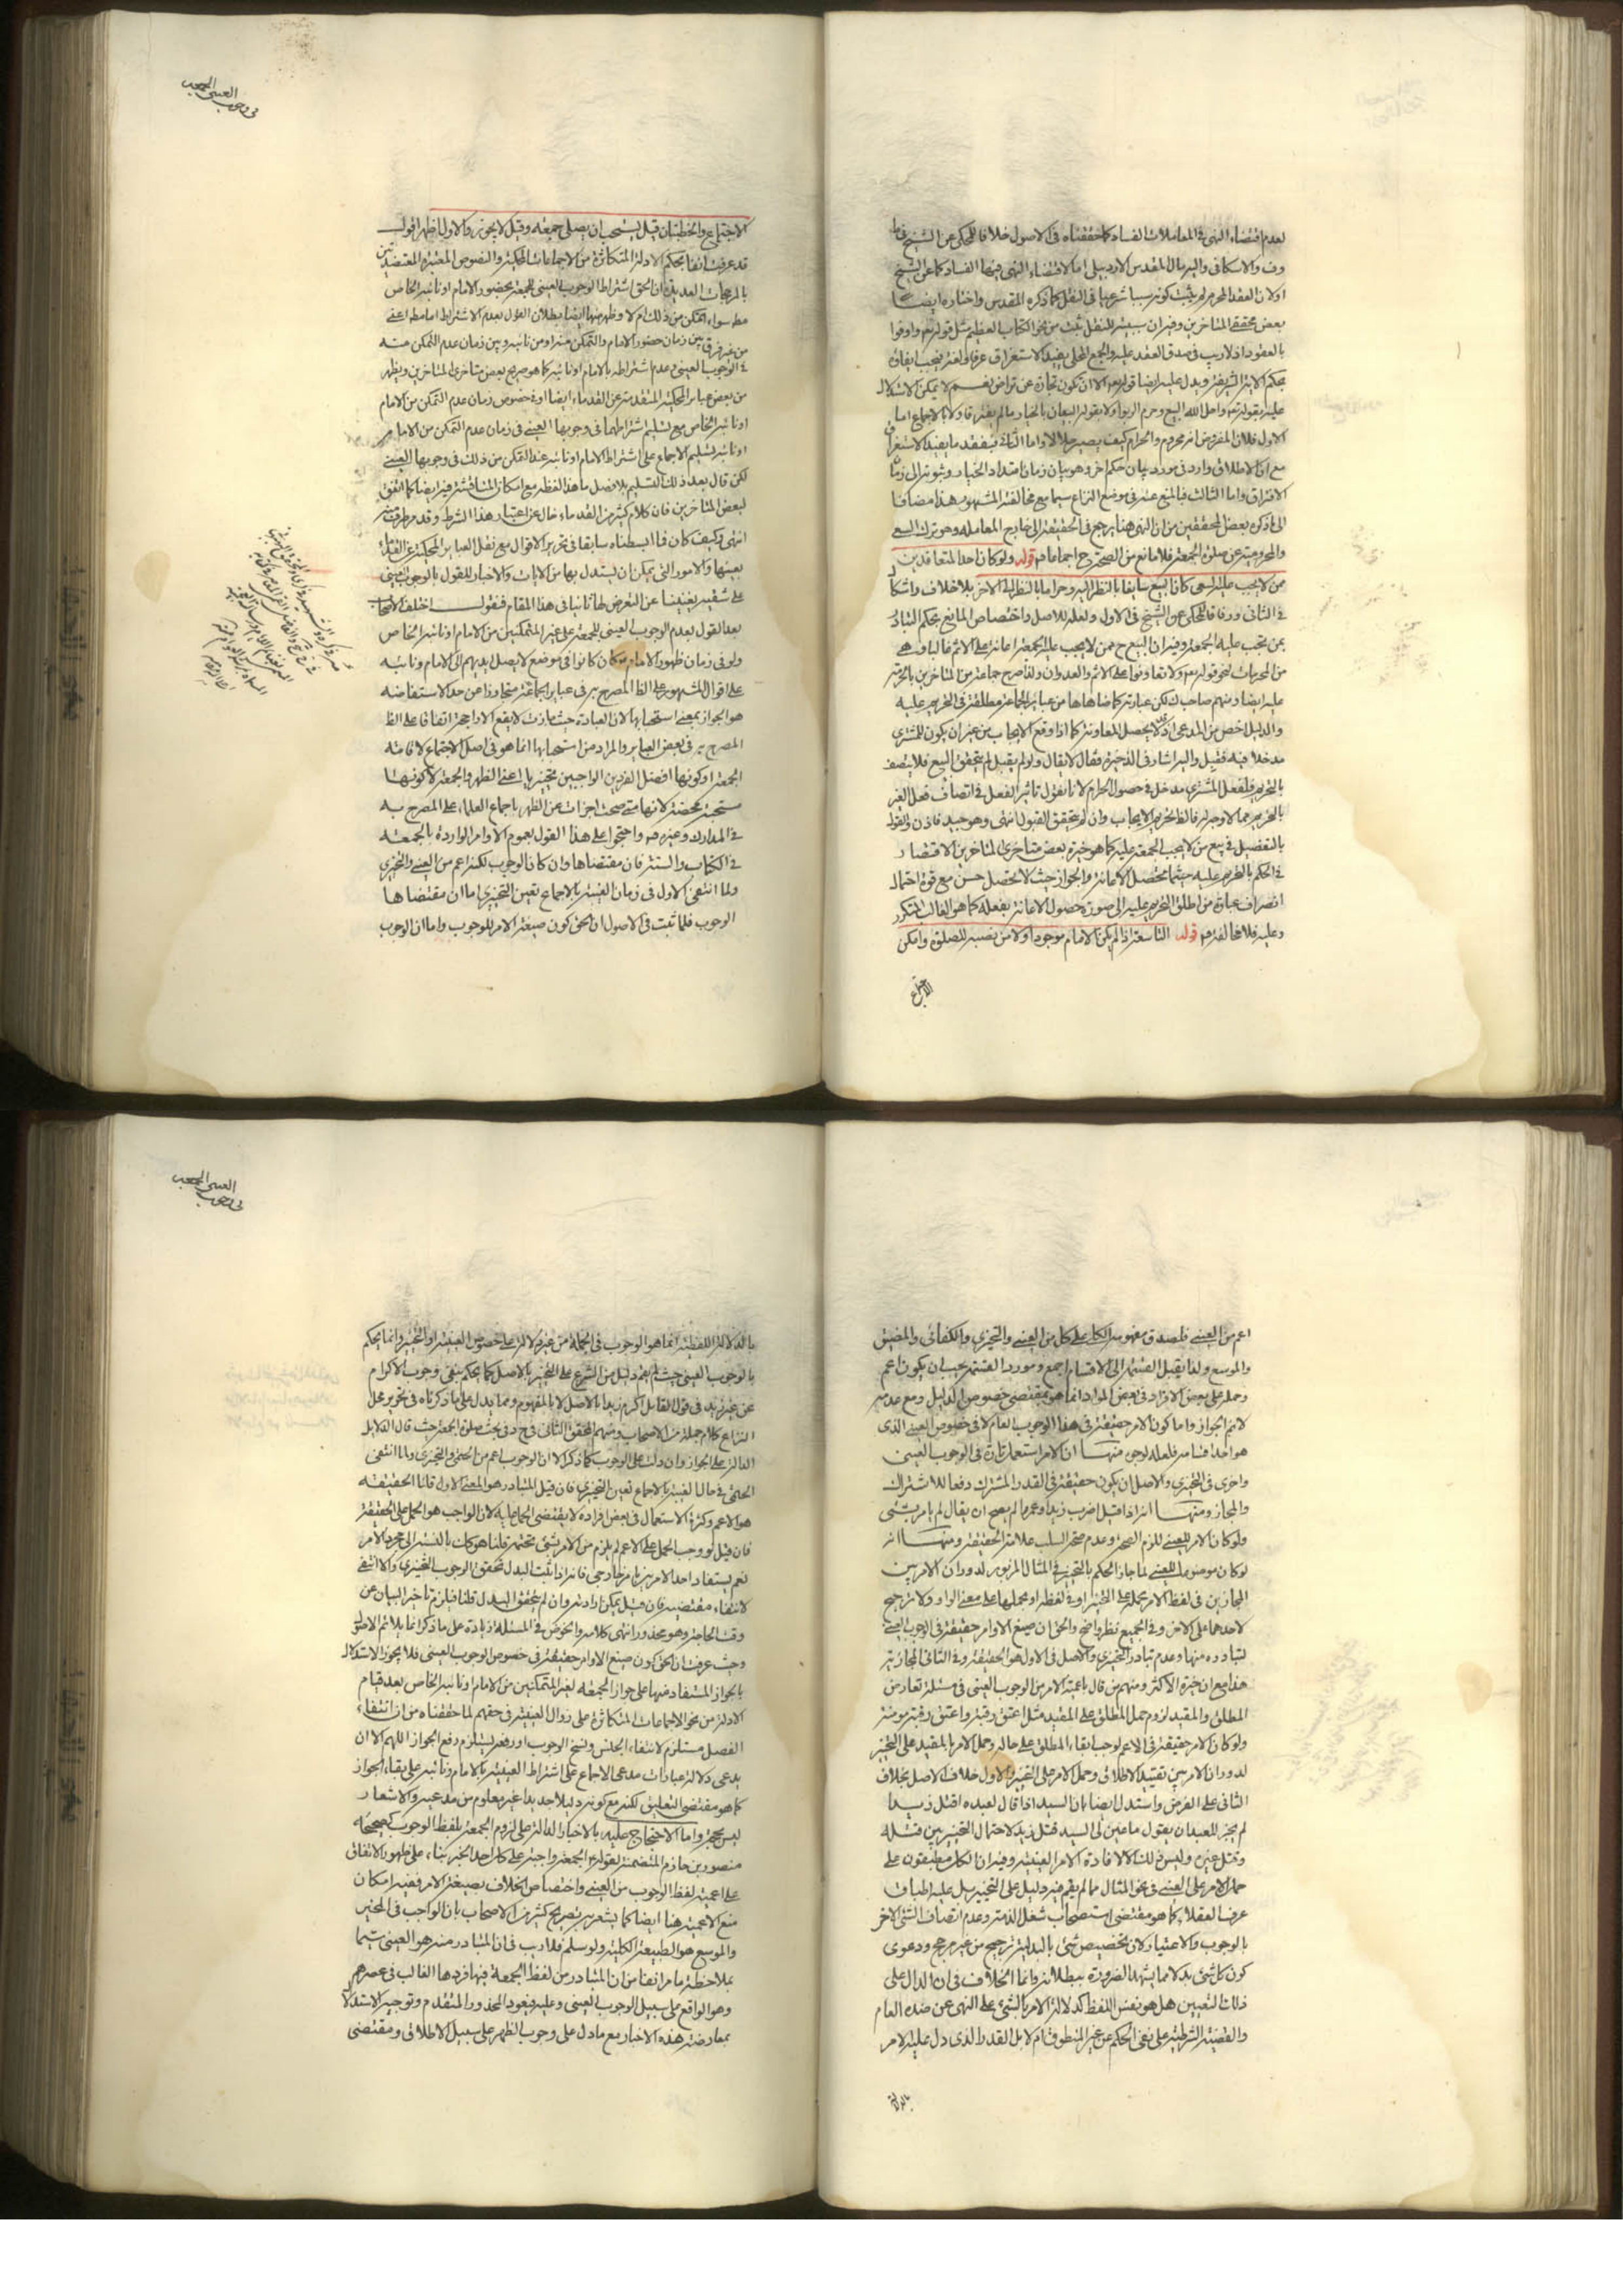 لعدم اقتضاء النهى فى المعاملات الفساد كما حققناه فى الاصول خلافا للمحكى عن الشيخ فى ط
وف والاسكافى واليه مال المقدس الاردبيلى اما لاقتضاء النهى فيها الفساد كما عن الشيخ
اولان العقد المحرم لم يثبت كونه سببا شرعيا فى النقل كما ذكره المقدس واختاره ايضا
بعض محققى المتاخرين وفيه ان سببيته للنقل ثبت من نحو الكتاب العظيم مثل قوله تعم واوفوا
بالعقود اذ لا ريب فى صدق العقد عليه والجمع المحلى يفيد الاستغراق عرفا ولغة فيجب ايفائه
بحكم الاية الشريفة ويدل عليه ايضا قوله تعم الا ان تكون تجارة عن تراض نعم لا يمكن الاستدلال
عليه بقوله تعم واحل الله البيع وحرم الربوا ولا بقوله البيعان بالخيار مالم يفترقا ولا بالاجماع اما
الاول فلان المفروض انه محروم والحرام كيف يصير حلالا واما الثانى فلفقد ما يفيد الاستغراق
مع ان الاطلاق وارد فى مورد بيان حكم اخر وهو بيان زمان امتداد الخيار وثبوته الى زمان
الافتراق واما الثالث فالمنع عنه فى موضع النزاع سيما مع مخالفة المشهور هذا مضافا
الى ما ذكره بعض المحققين من ان النهى هنا يرجع فى الحقيقة الى خارج المعامله وهو ترك السعى
والمحرومية عن صلوة الجمعة فلا مانع من الصحة ح اجماعا قوله ولو كان احد المتعاقدين
ممن لا يجب عليه السعى كان البيع سايغا بالنظر اليه وحراما بالنظر الى الاخر بلا خلاف واشكال
فى الثانى ووفاقا للمحكى عن الشيخ فى الاول ولعله للاصل واختصاص المانع بحكم التبادر
بمن تجب عليه الجمعة وفيه ان البيع ح ممن لا يجب عليه الجمعة اعانة على الاثم فالباب هى
من المحرمات لنحو قوله تعم ولا تعاونوا على الاثم والعدوان ولذا صرح جماعة من المتاخرين بالحرمة
عليه ايضا ومنهم صاحب ك لكن عبارته كما ضاهاها من عباير الجماعة مطلقة فى التحريم عليه
والدليل اخص من المدعى اذ قد لا يحصل المعاونة كما اذا وقع الايجاب من غير ان يكون للمشترى
مدخلا فيه فقبل واليه اشار فى الذخيرة فقال لا يقال ولو لم يقبل لم يتحقق البيع فلا يتصف
بالتحريم فلفعل المشترى مدخل فى حصول الحرام لانا نقول تاثير الفعل فى اتصاف فعل الغير
بالتحريم مما لا وجه له فالظ تحريم الايجاب وان لم يتحقق القبول انتهى وهو جيد فاذن والقول
بالتفصيل فى بيع من لا يجب الجمعة عليه كما هو خيرة بعض متاخرى المتاخرين الاقتصار
فى الحكم بالتحريم عليه حيثما تحصل الاعانة والجواز حيث لا تحصل حسن مع قوة احتمال
انصراف عبارة من اطلق التحريم عليه الى صورة حصول الاعانة بفعله كما هو الغالب المتكرر
وعليه فلا مخالفة قوله التاسعة اذا لم يكن الامام موجودا ولا من نصبه للصلوة وامكن
الاجتماع
فى وجوب العينى للجمعه
الاجتماع والخطبتان قيل يستحب ان يصلى جمعه وقيل لا يجوز والاول اظهر اقول
قد عرفت انفا بحكم الادلة المتكاثرة من الاجماعات المحكية والنصوص المعتبرة المعتضدتين
بالمرجحات العديدة ان الحق اشتراط الوجوب العينى للجمعة بحضور الامام او نائبه الخاص
مط سواء تمكن من ذلك ام لا وظهر منها ايضا بطلان القول بعدم الاشتراط اما مط اعنى
من غير فرق بين زمان حضور الامام والتمكن منه او من نائبه وبين زمان عدم التمكن منه
فى الوجوب العينى وعدم اشتراطه بالامام او نائبه كما هو صريح بعض متاخرى المتاخرين ويظهر
من بعض عباير المحكية المتقدمة عن القدماء ايضا او فى خصوص زمان عدم التمكن من الامام
او نائبه الخاص مع تسليم اشتراطهما فى وجوبها العينى فى زمان عدم التمكن من الامام
او نائبه لتسليم الاجماع على اشتراط الامام او نائبه عند التمكن من ذلك فى وجوبها العينى
لكن قال بعد ذلك التسليم بلا فصل ما هذا لفظه مع امكان المناقشة فيه ايضا كما اتفق
لبعض المتاخرين فان كلام كثير من القدماء خال عن اعتبار هذا الشرط وقد مر طرف منه
انتهى وكيف كان فما ابسطناه سابقا فى تحرير الاقوال مع نقل العباير المحكية عن القدماء
بعينها والامور التى يمكن ان يستدل بها من الايات والاخبار للقول بالوجوب العينى
على شقيه يغنينا عن التعرض لها ثانيا فى هذا المقام فنقول اختلف الاصحاب
بعد القول بعدم الوجوب العينى للجمعة على غير المتمكنين من الامام او نائبه الخاص
ولو فى زمان ظهور الامام وكان كانوا فى موضع لا يصل ايديهم الى الامام ونائبه
على اقوال المشهور على الظ المصرح به فى عباير الجماعة متجاوزا عن حد الاستفاضه
هو الجواز بمعنى استحبابها لان العبادة حيث جازت لا يقع الا راجحة اتفاقا على الظ
المصرح به فى بعض العباير والمراد من استحبابها انما هو فى اصل الاجتماع لاقامته
الجمعة او كونها افضل الفردين الواجبين تخييرا اعنى الظهر والجمعة لا كونها
مستحبة محضة لانها متى صحت اجزات عن الظهر باجماع العلماء على المصرح به
فى المدارك وغيره واحتجوا على هذا القول بعموم الاوامر الوارده بالجمعه
فى الكتاب والسنة فان مقتضاها وان كان الوجوب لكنه اعم من العينى والتخييرى
ولما انتفى الاول فى زمان الغيبة بالاجماع تعين التخييرى اما ان مقتضاها
الوجوب فلما ثبت فى الاصول ان الحق كون صيغة الامر للوجوب واما ان الوجوب
اعم من العينى فلصدق مفهومه الكلى على كل من العينى والتخييرى والكفائى والمضيق
والموسع ولذا يقبل القسمة الى الاقسام اجمع ومورد القسمة يجب ان يكون اعم
وحمله على بعض الافراد فى بعض الموارد انما هو بمقتضى خصوص الدليل ومع عدمه
لانم الجواز واما كون الامر حقيقة فى هذا الوجوب العام لا فى خصوص العينى الذى
هو احد اقسامه فلعله لوجوه منها ان الامر استعمل تارة فى الوجوب العينى
واخرى فى التخييرى والاصل ان يكون حقيقة فى القدر المشترك دفعا للاشتراك
والمجاز ومنها انه اذا قيل اضرب زيدا وعمروا لم يصح ان يقال لم يامر بشئى
ولو كان الامر للعينى للزم الصحة وعدم صحة السلب علامة الحقيقة ومنها انه
لو كان موضوعا للعينى لما جاز الحكم بالتخيير فى المثال المزبور لدوران الامر بين
المجازين فى لفظ الامر بحمله على التخيير او فى لفظة او بحملها على معنى الواو ولا ترجيح
لاحدهما على الاخر وفى الجميع نظر واضح والحق ان صيغ الاوامر حقيقة فى الوجوب العينى
لتبادره منها وعدم تبادر التخييرى والاصل فى الاول هو الحقيقة وفى الثانى المجازية
هذا مع ان خيرة الاكثر ومنهم من قال باعمية الامر من الوجوب العينى فى مسئلة تعارض
المطلق والمقيد لزوم حمل المطلق على المقيد مثل اعتق رقبة واعتق رقبة مومنة
ولو كان الامر حقيقة فى الاعم لوجب ابقاء المطلق على حاله وحمل الامر بالمقيد على التخيير
لدوران الامر بين تقييد الاطلاق وحمل الامر على التخيير والاول خلاف الاصل بخلاف
الثانى على الفرض واستدل ايضا بان السيد اذا قال لعبده اقتل زيدا
لم يجز للعبد ان يقول ما عين لى السيد قتل زيد لاحتمال التخيير بين قتله
وقتل غيره وليس ذلك الا لافادة الامر العينية وفيه ان الكل متفقون على
حمل الامر على العينى فى نحو المثال ما لم يقم فيه دليل على التخيير بل عليه اطباق
عرف العقلاء كما هو مقتضى استصحاب شغل الذمة وعدم اتصاف الشئى الاخر
بالوجوب والاعتبار ولان تخصيص شئى بالبدلية ترجيح من غير مرجح ودعوى
كون كل شئى بدلا مما يشهد الضرورة ببطلانه وانما الخلاف فى ان الدال على
ذلك التعيين هل هو نفس اللفظ كدلالة الامر بالشئى على النهى عن ضده العام
والقضية الشرطية على نفى الحكم عن غير المنطوق ام لا بل القدر الذى دل عليه الامر
بالدلالة
فى وجوب العينى للجمعه
بالدلالة اللفظية انما هو الوجوب فى الجملة من غير دلالة على خصوص العينية او التخيير وانما يحكم
بالوجوب العينى حيث لم يقم دليل من الشرع على التخيير بالاصل كما يحكم بنفى وجوب الاكرام
عن غير زيد فى قول القايل اكرم زيدا بالاصل لا بالمفهوم ومما يدل على ما ذكرناه فى تحرير محل
النزاع كلام جملة من الاصحاب ومنهم المحقق الثانى فى ح د فى بحث صلوة الجمعة حيث قال الدلايل
الدالة على الجواز وان دلت على الوجوب كما ذكر الا ان الوجوب اعم من الحتمى والتخييرى ولما انتفى
الحتمى فى حال الغيبة بالاجماع تعين التخييرى فان قيل المتبادر هو المعنى الاول قلنا الحقيقه
هو الاعم وكثرة الاستعمال فى بعض افراده لا يقتضى الحمل عليه لان الواجب هو الحمل على الحقيقة
فان قيل لو وجب الحمل على الاعم لم يلزم من الامر بشئى تحتمه قلنا هو كك بالنسبة الى مجرد الامر
نعم يستفاد احد الامرين بامر خارجى فانه اذا ثبت البدل تحقق الوجوب التخييرى والا انتفى
لانتفاء مقتضيه فان قيل يمكن ارادته وان لم يتحقق البدل قلنا فيلزم تاخير البيان عن
وقت الحاجة وهو محذور انتهى كلامه والخوض فى المسئلة زيادة على ما ذكر انما يلائم الاصول
وحيث عرفت ان الحق كون صيغ الاوامر حقيقة فى خصوص الوجوب العينى فلا يجوز الاستدلال
بالجواز المستفاد منها على جواز الجمعه لغير المتمكنين من الامام او نائبه الخاص بعد قيام
الادلة من نحو الاجماعات المتكاثرة على زوال العينية فى حقهم لما حققناه من ان انتفاء
الفصل مستلزم لانتفاء الجنس ونسخ الوجوب او رفعه يستلزم رفع الجواز اللهم الا ان
يدعى دلالة عبارات مدعى الاجماع على اشتراط العينية بالامام ونائبه على بقاء الجواز
كما هو مقتضى التعليق لكنه مع كونه دليلا جديدا غير معلوم من مدعيه والاشعار
ليس بحجة واما الاحتجاج عليه بالاخبار الدالة على لزوم الجمعة بلفظ الوجوب كصحيحه
منصور بن حازم المتضمنة لقوله الجمعة واجبة على كل احد الخبر بناء على ظهور الاتفاق
على اعمية لفظ الوجوب من العينى واختصاص الخلاف بصيغة الامر ففيه امكان
منع الاعمية هنا ايضا كما يشعر به تصريح كثير من الاصحاب بان الواجب فى المخير
والموسع هو الطبيعة الكلية ولو سلم فلا ريب فى ان المتبادر منه هو العينى سيما
بملاحظة ما مر انفا من ان المتبادر من لفظ الجمعة فيها فردها الغالب فى عصرهم
وهو الواقع على سبيل الوجوب العينى وعليه فيعود المحذور المتقدم وتوجيه الاستدلال
بمعارضة هذه الاخبار مع ما دل على وجوب الظهر على سبيل الاطلاق ومقتضى